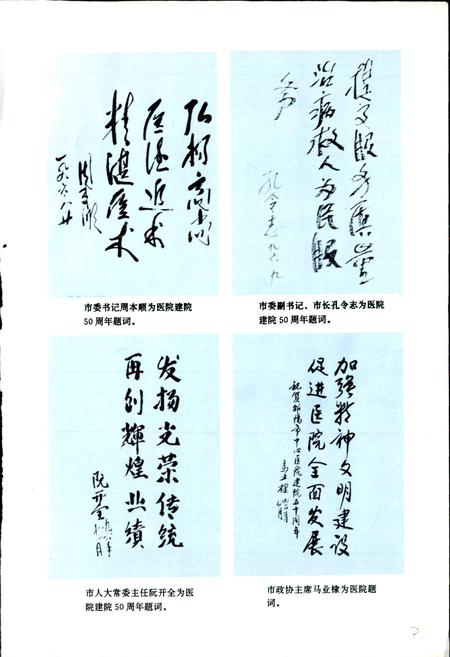 弘扬高尚
医德近术
精湛医术
周本顺
一九九六.八.廿
治病救人为
孔令志 九六.九
市委书记周本顺为医院建院
50 周年题词。
市委副书记、市长孔令志为医院
建院 50 周年题词。
发扬光荣传统
再创辉煌业绩
阮开全
加强精神文明建设
促进医院全面发展
祝贺邵阳市中心医院建院五十周年
马亚棣
市人大常委主任阮开全为医
院建院 50 周年题词。
市政协主席马业棣为医院题
词。